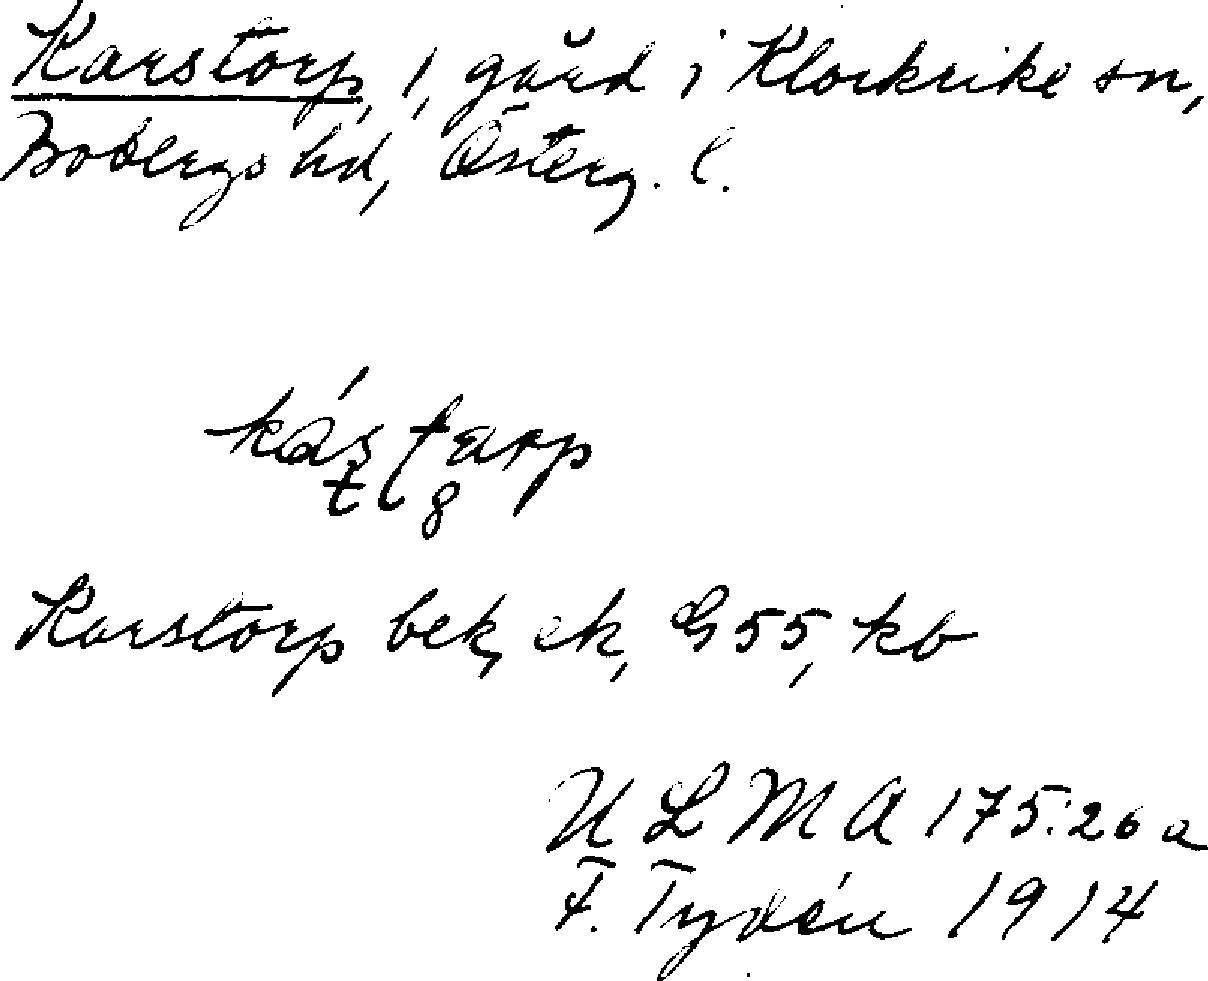 Karstorp, 1, gård i Klockrike sn,
Bobergs hd, Österg. l.
Karstorp bek, ek, G55, kb
ULMA 175:26a
F. Tydén 1914